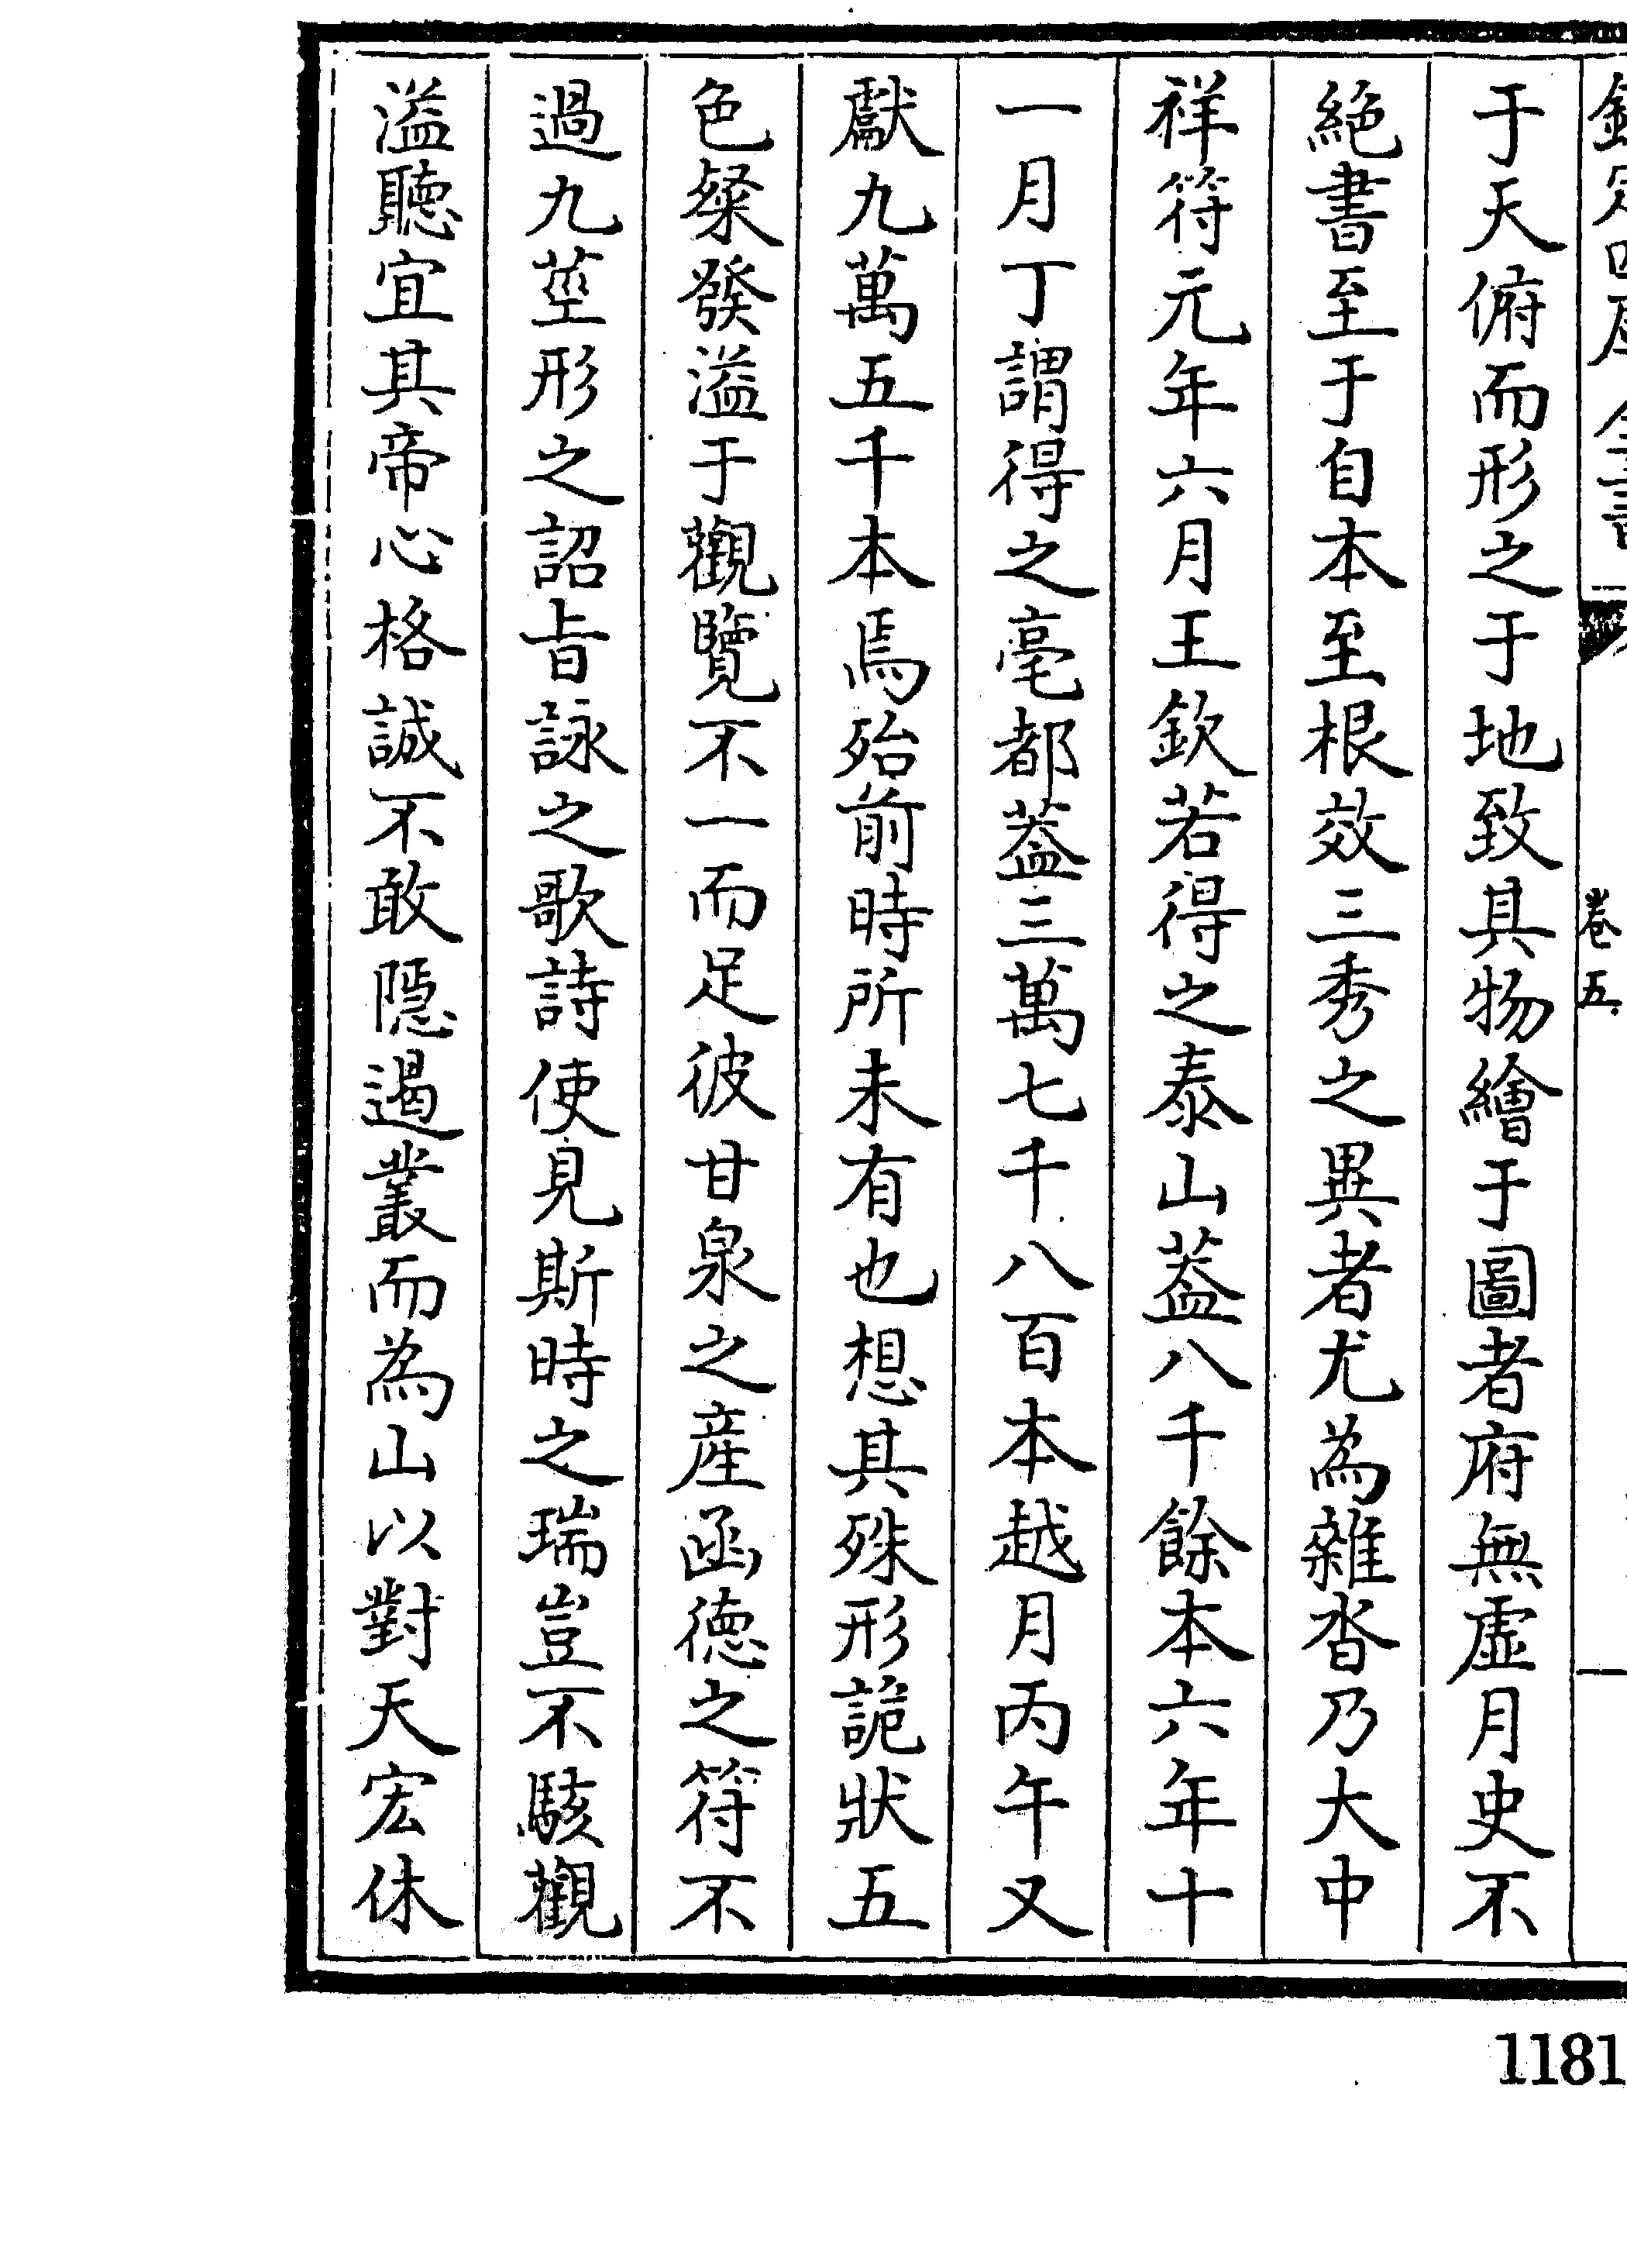 欽定四庫全書
卷五
于天俯而形之于地致其物繪于圖者府無虚月史不
絶書至于自本至根效三秀之異者尤為雜沓乃大中
祥符元年六月王欽若得之泰山葢八千餘本六年十
一月丁謂得之亳都葢三萬七千八百本越月丙午又
獻九萬五千本焉殆前時所未有也想其殊形詭狀五
色粲發溢于觀覽不一而足彼甘泉之産函德之符不
過九莖形之詔旨詠之歌詩使見斯時之瑞豈不駭觀
溢聽宜其帝心格誠不敢隠遏叢而為山以對天宏休
1181